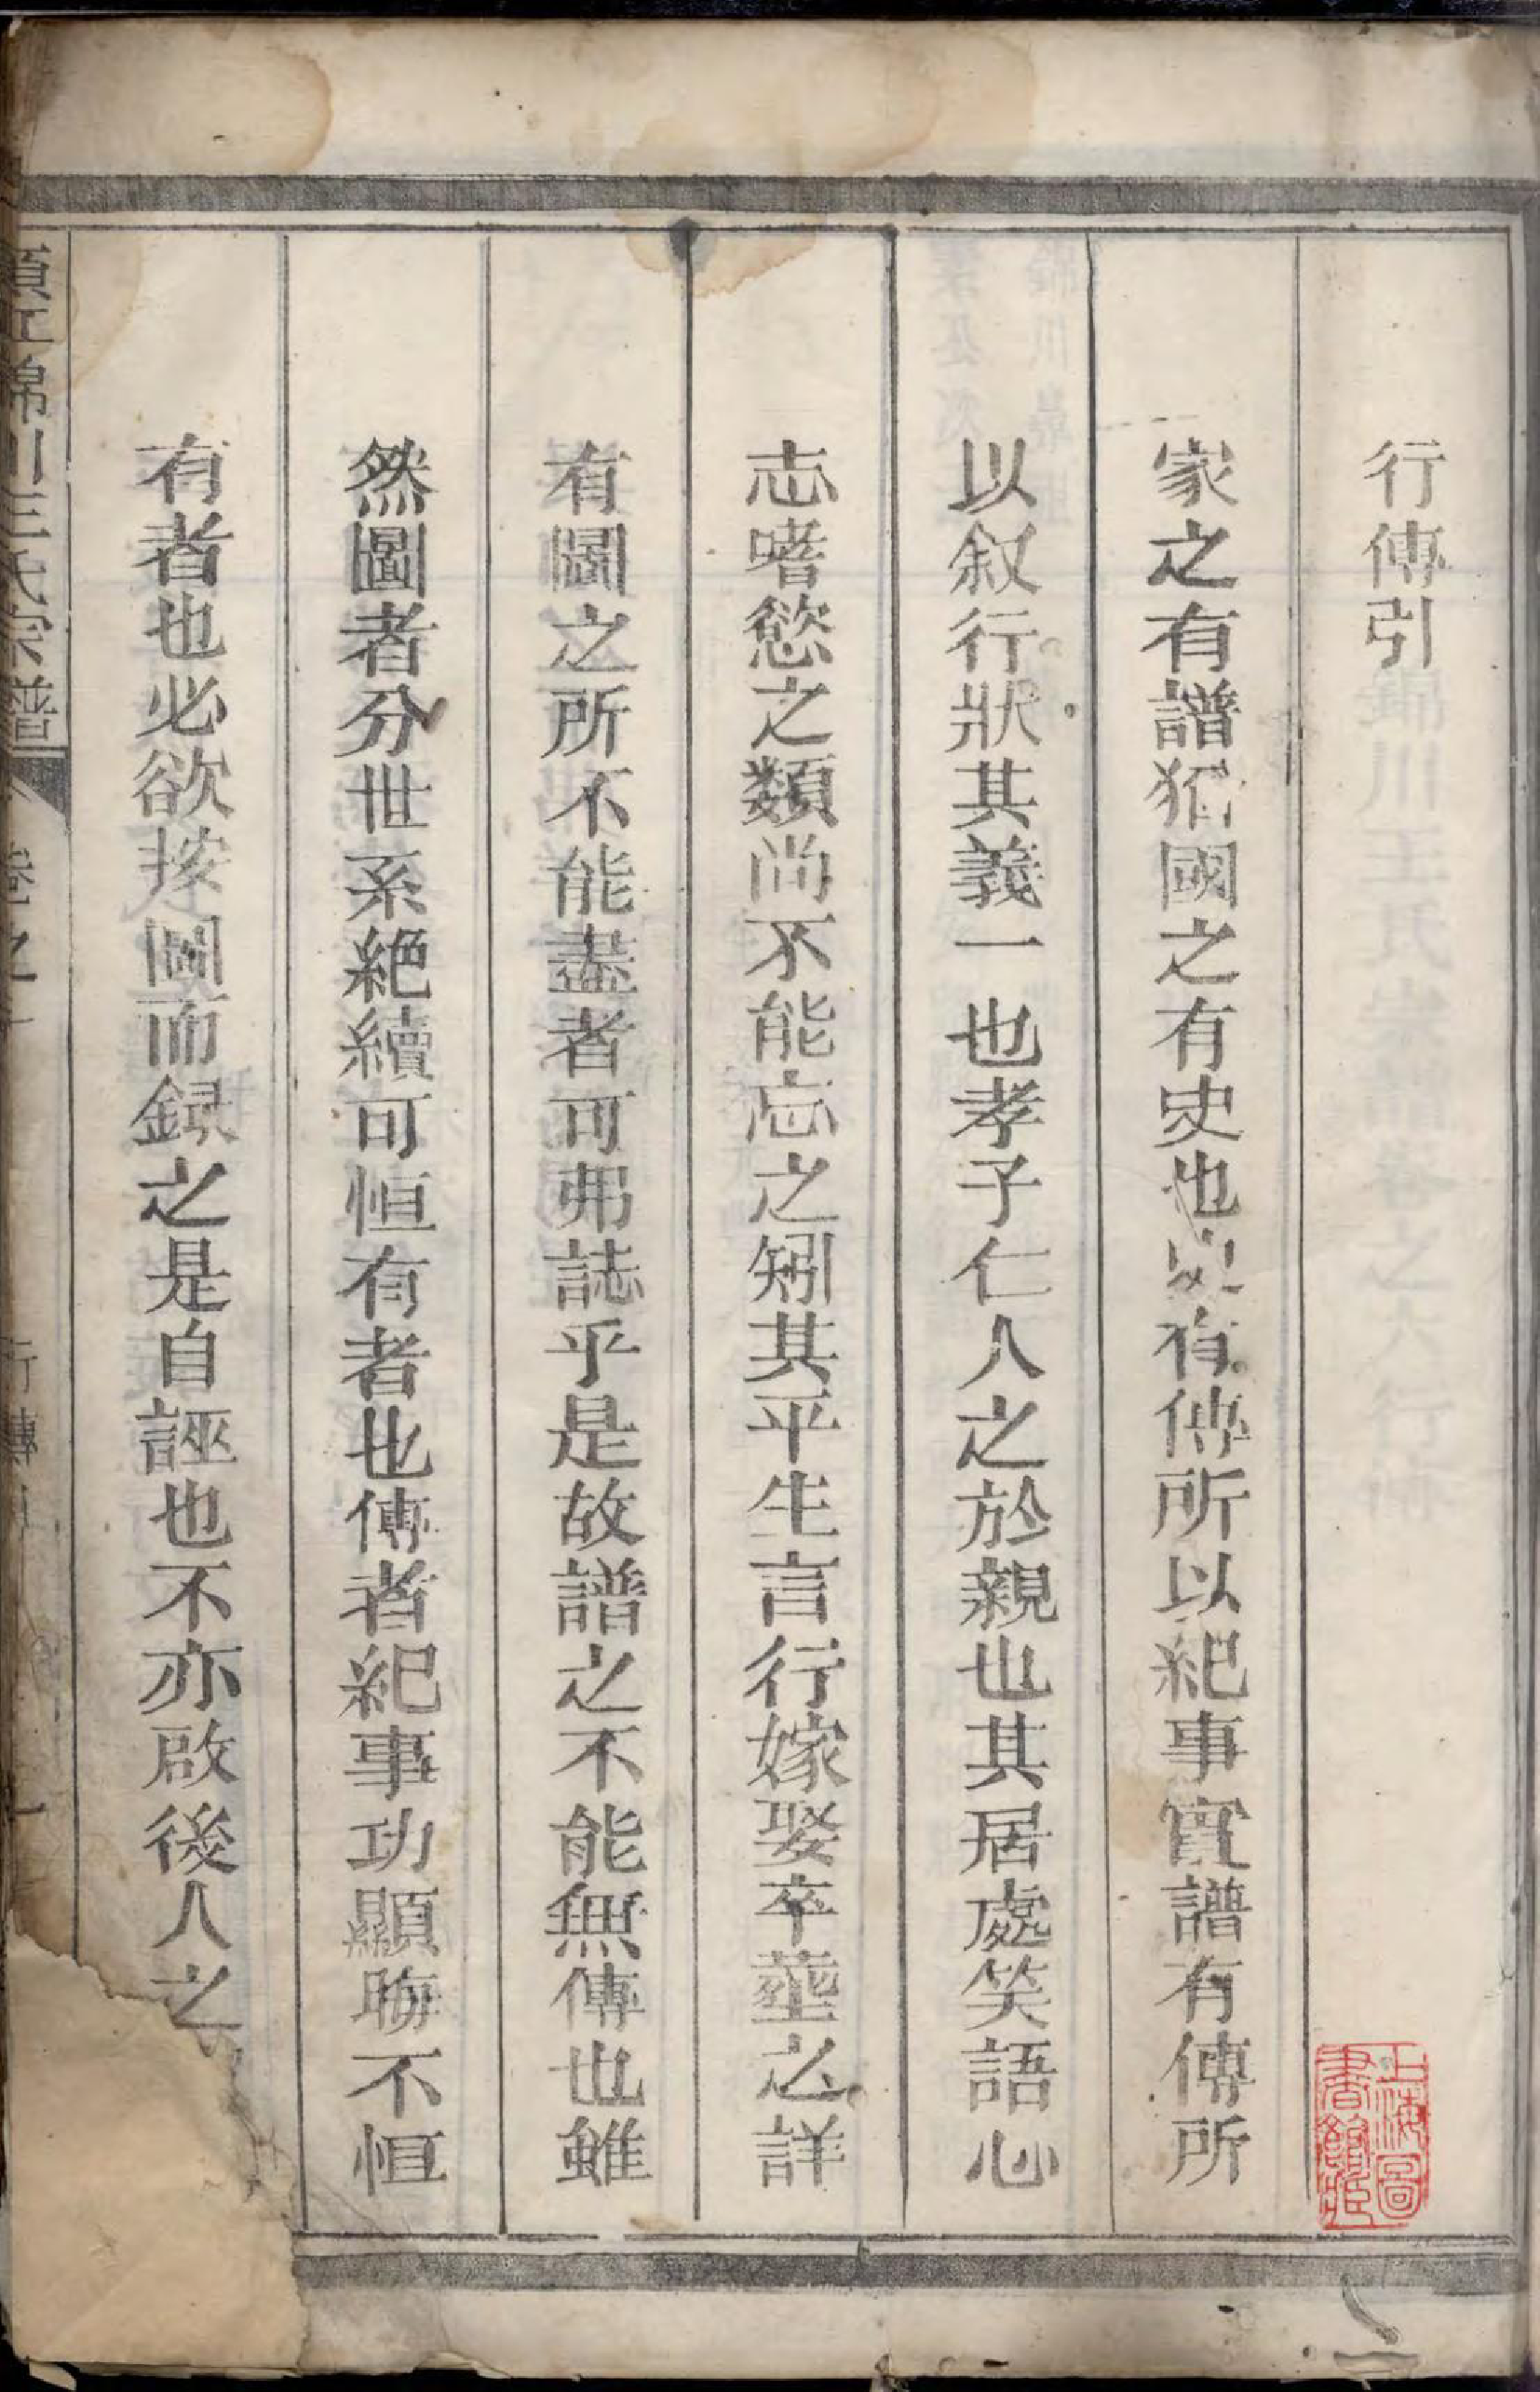 行傳引
家之有譜猶國之有史也史有傳所以紀事實譜有傳所
以叙行狀其義一也孝子仁人之於親也其居處笑語心
志嗜慾之類尚不能忘之矧其平生言行嫁娶卒塟之詳
有圖之所不能盡者可弗誌乎是故譜之不能無傳也雖
然圖者分世系絕續可恒有者也傳者紀事功顯晦不恒
有者也必欲按圖而録之是自誣也不亦啟後人之
川王氏宗譜
卷之
行傳
上海圖
書館藏